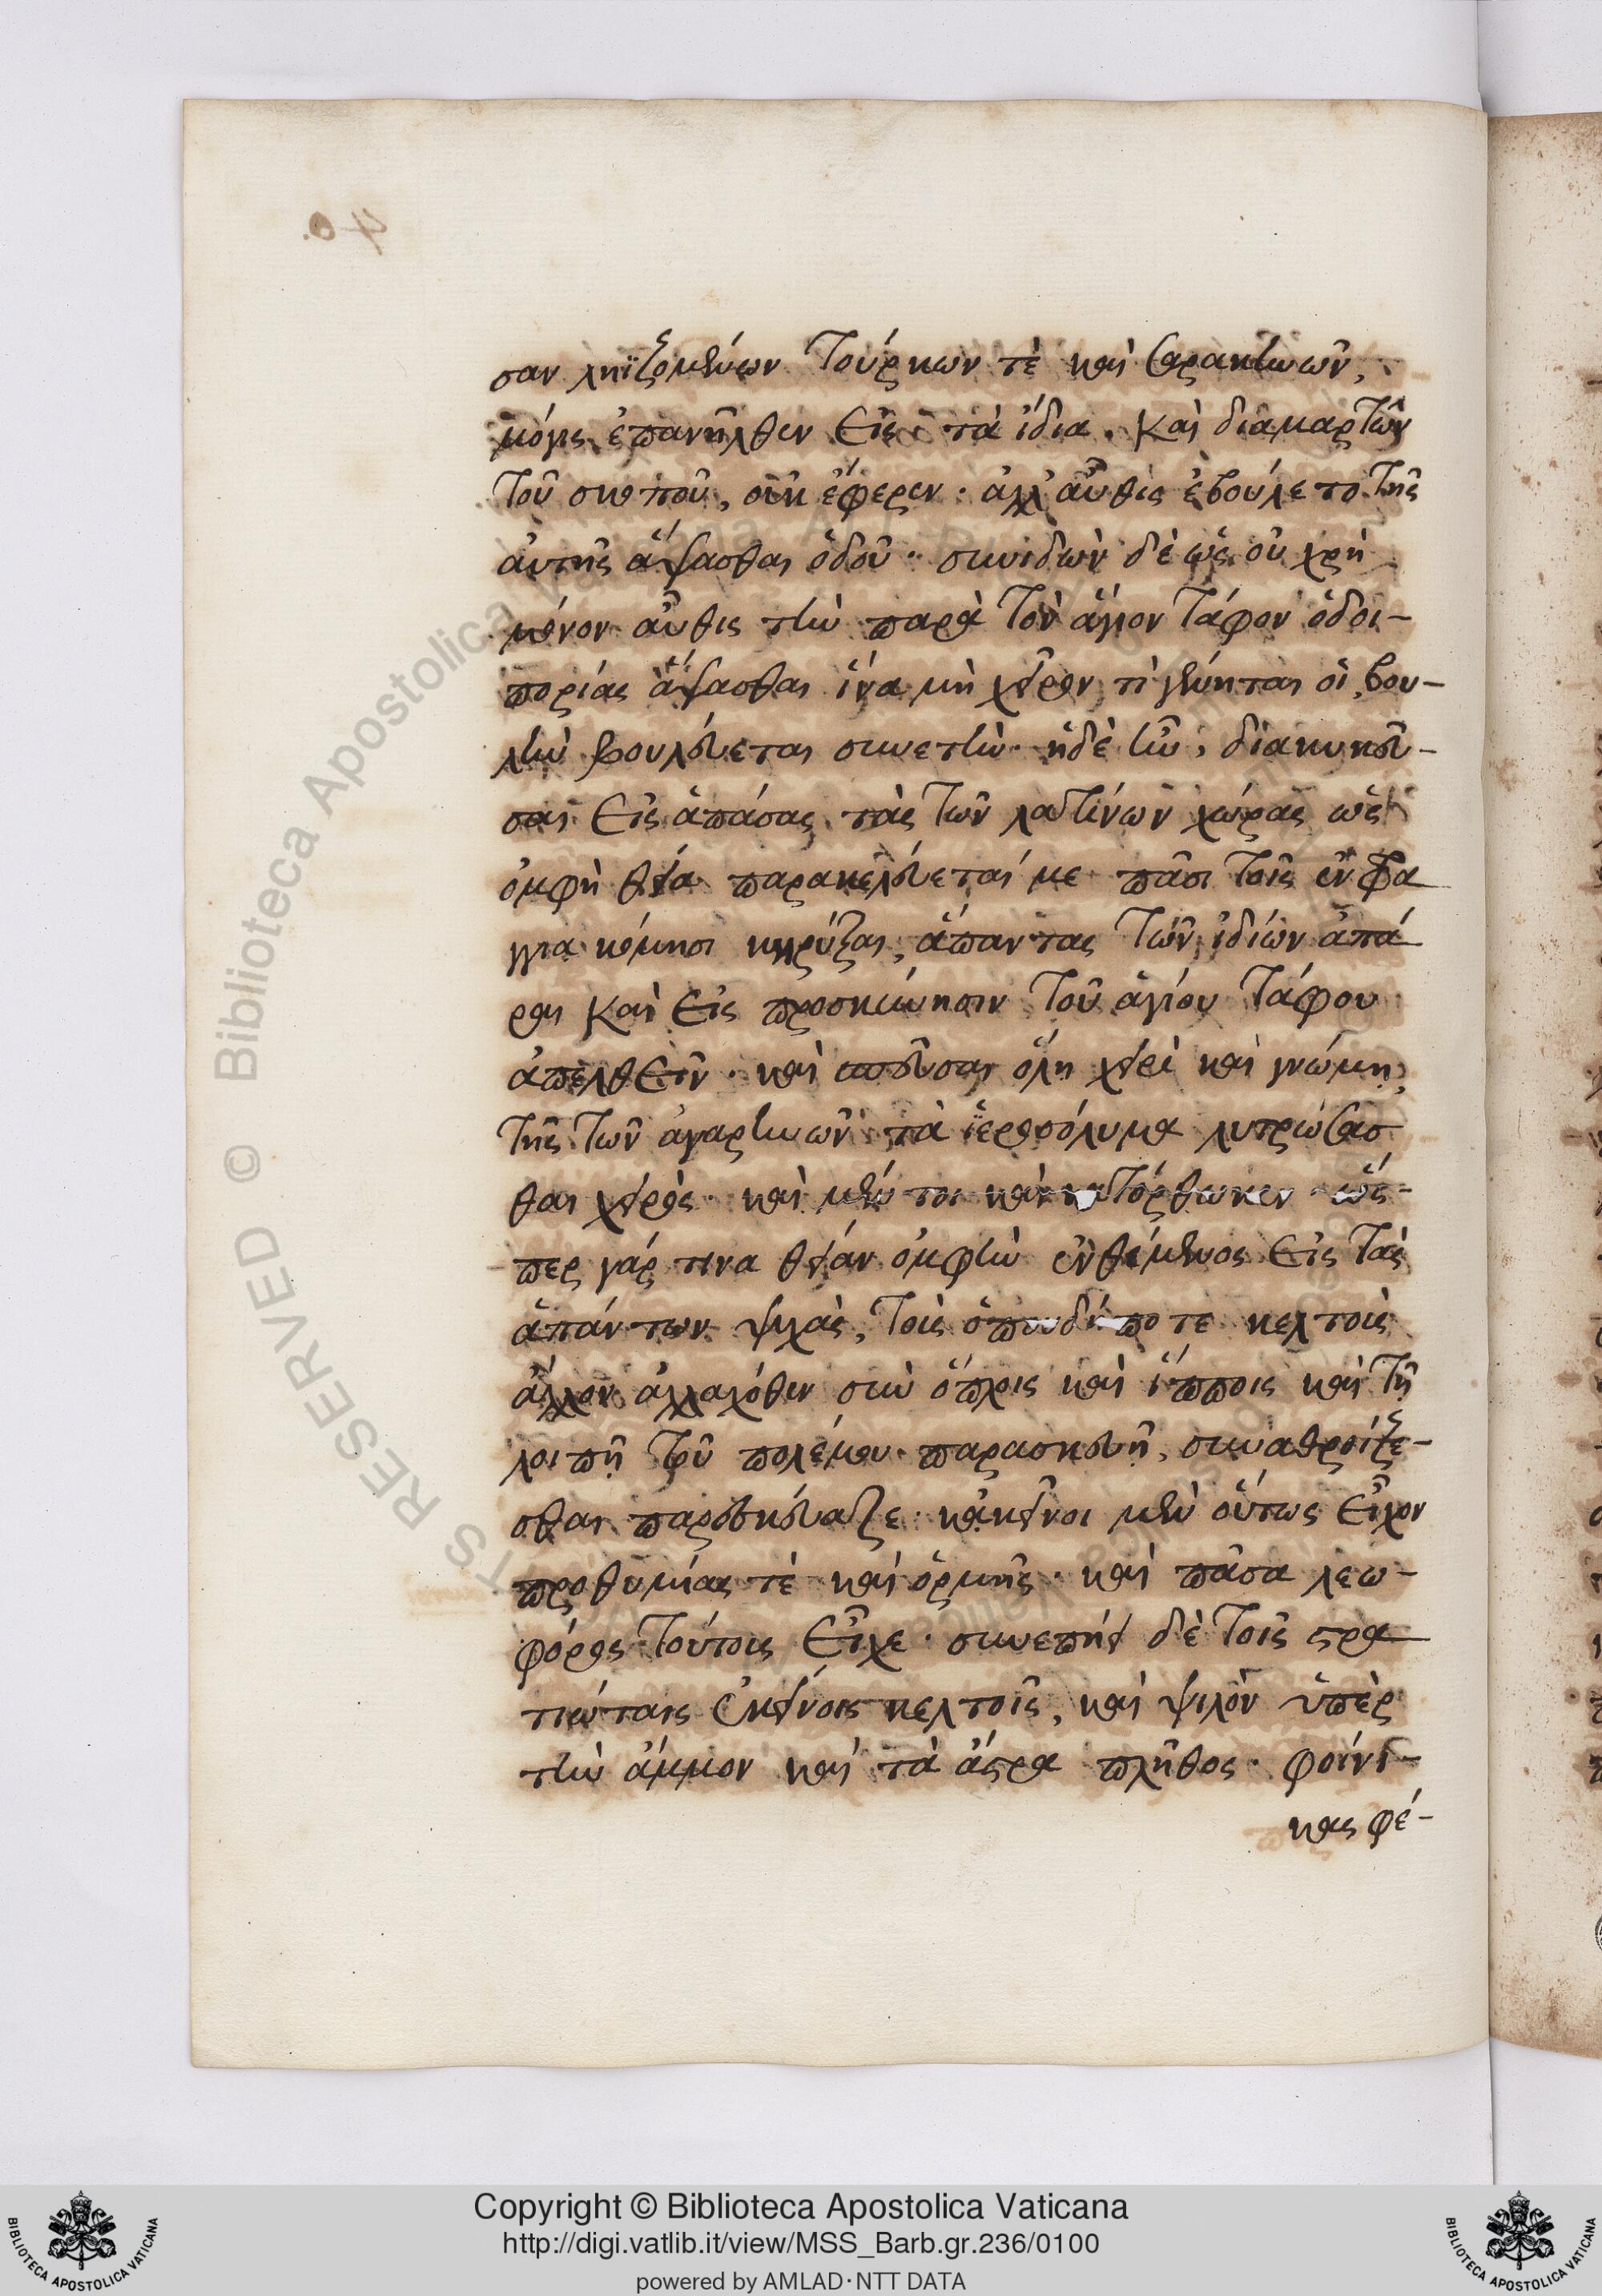 σαν ληϊζομένων Τούρκων τὲ καὶ Σαρακηνῶν,
μόγις ἐπανῆλθεν εἰς τὰ ἴδια. Καὶ διαμαρτῶν
τοῦ σκοποῦ, οὐκ ἔφερεν · ἀλλ' αὖθις ἐβούλετο τῆς
αὐτῆς ἅψασθαι ὁδοῦ · συνιδὼν δὲ ὡς οὐ χρὴ
μόνον αὖθις τὴν παρὰ τὸν ἅγιον τάφον ὁδοι-
πορίας ἅψασθαι ἵνα μὴ χεῖρον τὶ γένηται οἱ βου-
λὴν βουλεύεται συνετὴν · ἡ δὲ ἦν, διακηκεῦ-
σαι εἰς ἁπάσας τὰς τῶν λατίνων χώρας ὡς
ὀμφὴ θεία παρακελεύεταί με πᾶσι τοῖς ἐν φρα
γγία κόμησι κηρύξαι, ἅπαντας τῶν ἰδίων ἀπά
ραι καὶ εἰς προσκύνησιν τοῦ ἁγίου τάφου
ἀπελθεῖν · καὶ σπεῦσαι ὅλῃ χειρὶ καὶ γνώμῃ,
τῆς τῶν ἀγαρηνῶν τὰ ἱεροσόλυμα λυτρώσασ
θαι χειρὸς · καὶ μέν τοι καὶ κατόρθωκεν · ὥσ-
περ γάρ τινα θείαν ὀμφὴν ἐνθέμενος εἰς τὰς
ἁπάντων ψυχὰς, τοὶς ὁπουδήποτε κελτοὶς
ἄλλον ἀλλαχόθεν σὺν ὅπλοις καὶ ἵπποις καὶ τῇ
λοιπῇ τοῦ πολέμου παρασκευῇ, συναθροίζε-
σθαι παρεσκεύαζε · κἀκεῖνοι μὲν οὕτως εἶχον
προθυμίας τὲ καὶ ὁρμῆς · καὶ πᾶσα λεω-
φόρος τούτοις εἶχε · συνεπῄει δὲ τοῖς στρα
τιώταις ἐκείνοις κελτοῖς, καὶ ψιλὸν ὑπὲρ
τὴν ἄμμον καὶ τὰ ἄστρα πλῆθος · φοίνι-
κας φέ-
Copyright © Biblioteca Apostolica Vaticana
http://digi.vatlib.it/view/MSS_Barb.gr.236/0100
powered by AMLAD·NTT DATA